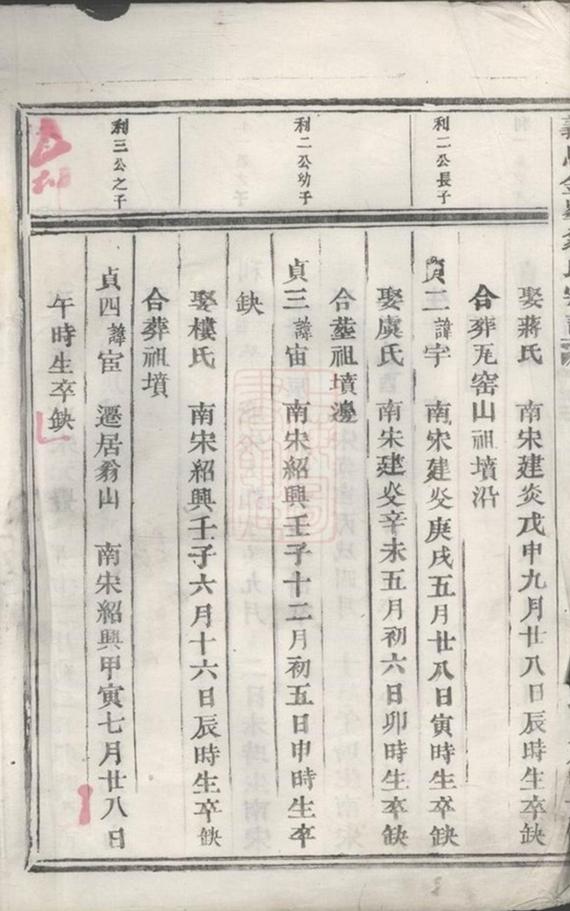 娶蔣氏　南宋建炎戊申九月廿八日辰時生卒缺
合葬瓦窑山祖墳沿
利二公長子
貞二諱宇　南宋建炎庚戌五月廿八日寅時生卒缺
娶虞氏　南宋建炎辛未五月初六日卯時生卒缺
合塟祖墳邊
利二公幼子
貞三諱宙　南宋紹興壬子十二月初五日申時生卒
缺
娶樓氏　南宋紹興壬子六月十六日辰時生卒缺
合葬祖墳
利三公之子
貞四諱宦　遷居裔山　南宋紹興甲寅七月廿八日
午時生卒缺